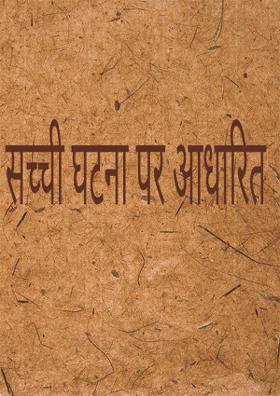 सच्ची घटना पर आधारित